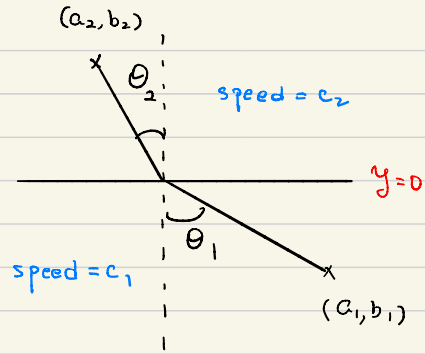 (a₂,b₂)
θ₂
speed = c₂
y=0
θ₁
speed = c₁
(a₁,b₁)